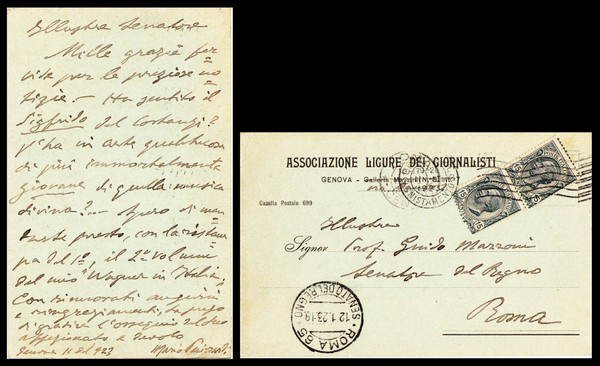 Illustre Senatore
Mille grazie fer
vide per le preziose no
tizie. - Ha sentito il
Sigfrido del Costanzi?
V'ha in arte qualcosa
di più immortalmente
giovane di quella musica
divina? - Spero di man
darle presto, con la ristam
pa del 1º, il 2º volume
del mio "Wagner in Italia".
Con rinnovati auguri
e ringraziamenti, la prego
di gradire l'ossequio del suo
affezionato e devoto
Genova 11 del 923 Mario
ASSOCIAZIONE LIGURE DEI GIORNALISTI
GENOVA - Galleria Mazzini
Casella Postale 699
Illustre
Signor Prof. Guido Mazzoni
Senatore del Regno
Roma
ROMA 65
SENATO DEL REGNO
12.1.23